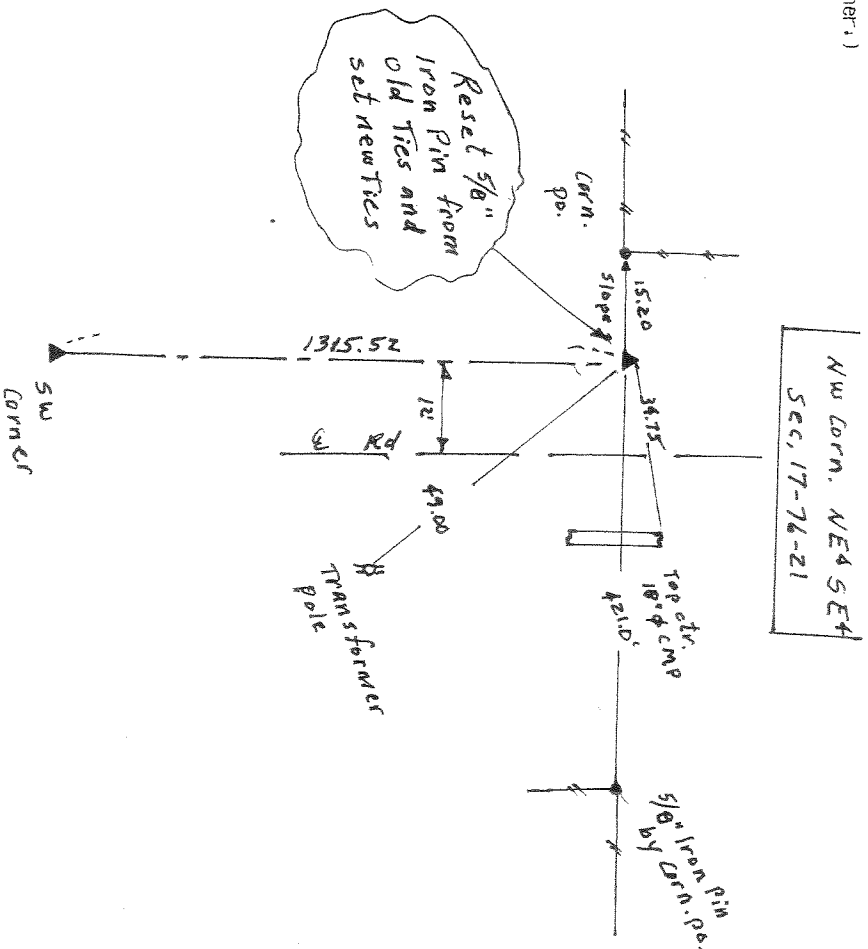 ner.)
NW Corn. NE4 SE4
Sec, 17-76-21
Reset 5/8"
Iron Pin from
old Ties and
set new Ties
Corn.
po.
15.20
slope
34.75
1315.52
12'
℄ Rd
49.00
Transformer
pole
Top ctr.
18"φ CMP
421.0'
5/8" Iron pin
by Corn. po.
SW
Corner